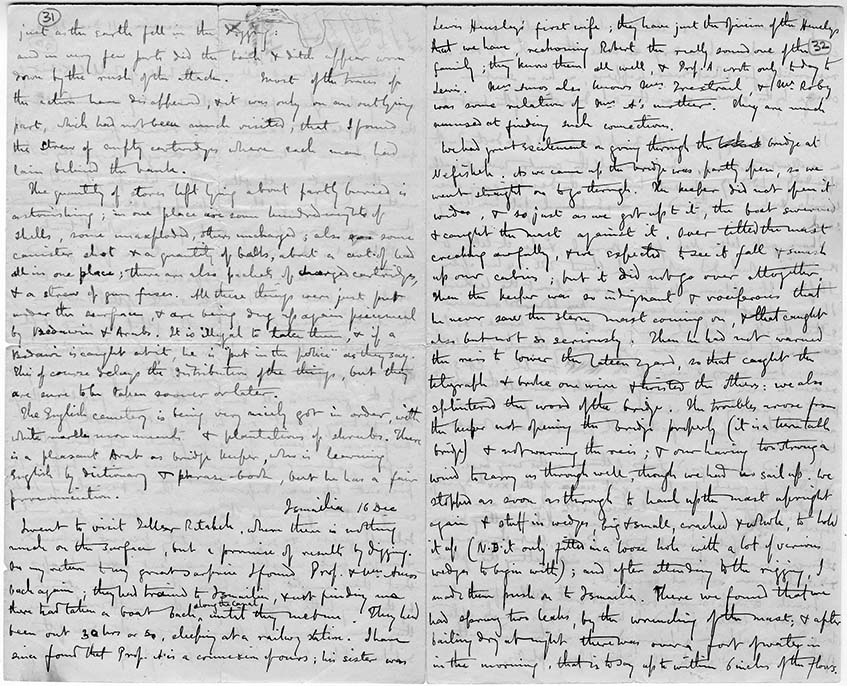 31
just as the earth fell in the digging:
and in very few parts did the bank & ditch appear worn
down by the rush of the attack. Most of the traces of
the action have disappeared, & it was only on an outlying
part, which had not been much visited, that I found
the strew of empty cartridges where each man had
lain behind the bank.
The quantity of stores left lying about partly buried is
astonishing; in one place are some hundredweights of
shells, some unexploded, others uncharged; also some
canister shot & a quantity of balls, about a cwt. of lead
all in one place; there are also packets of charged cartridges,
& a strew of gun fuses. All these things were just put
under the surface, & are being dug up again piecemeal
by Bedawin & Arabs. It is illegal to take them, & if a
Bedawi is caught at it, he is "put in the police" as they say.
This of course delays the distribution of the things, but they
are sure to be taken sooner or later.
The English cemetery is being very nicely got in order, with
white marble monuments & plantations of shrubs. There
is a pleasant Arab as bridge keeper, who is learning
English by dictionary & phrase-book, but he has a fair
pronunciation.
Ismailia 16 Dec
I went to visit Tell er Retabeh, where there is nothing
much on the surface, but a promise of result by digging.
On my return to my great surprise I found Prof. & Mrs Amos
back again; they had trained to Ismailia, & not finding me
there had taken a boat back along the canal until they met me. They had
been out 30 hrs or so, sleeping at a railway station. I have
since found that Prof. A is a connexion of ours; his sister was
32
Lewis Hensley's first wife; they have just the opinion of the Hensleys
that we have, reckoning Robert the really sound one of the
family; they know them all well, & Prof. A wrote only today to
Lewis. Mrs Amos also knows Mrs & Mr Roby
was some relation of Mrs A's mother. They are much
amused at finding such connections.
We had great excitement on going through the bridge at
Nefisheh. As we came up the bridge was partly open, so we
went straight on to go through. The keeper did not open it
wider, & so just as we got up to it, the boat swerved
& caught the mast against it. Over tilted the mast
creaking awfully, & we expected to see it fall & smash
up our cabins; but it did not go over altogether.
Then the keeper was so indignant & vociferous that
he never saw the stern mast coming on, & that caught
also but not so seriously. Then he had not warned
the reis to lower the lateen yard, so that caught the
telegraph & broke one wire & twisted the others: we also
splintered the wood of the bridge. The troubles arose from
the keeper not opening the bridge properly (it is a turntable
bridge) & not warning the reis; & our having too strong a
wind to carry us through well, though we had no sail up. We
stopped as soon as through to haul up the mast upright
again & stuff in wedges, big & small, cracked & whole, to hold
it up (N.B. it only fitted in a loose hole with a lot of various
wedges to begin with); and after attending to the rigging, I
made them push on to Ismailia. There we found that we
had sprung two leaks, by the wrenching of the mast; & after
bailing dry at night there was over a foot of water in
in the morning, that is to say up to within 6 inches of the floor.